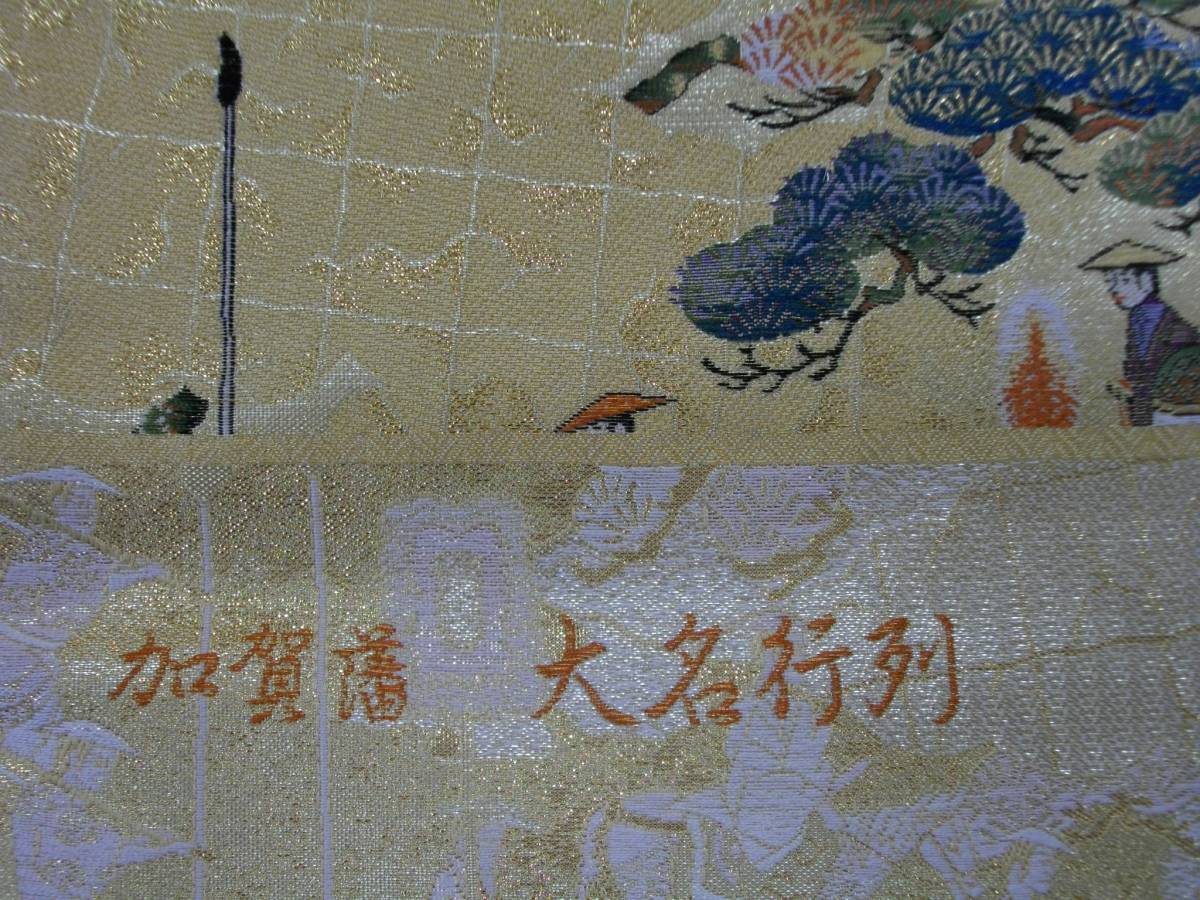 加賀藩 大名行列